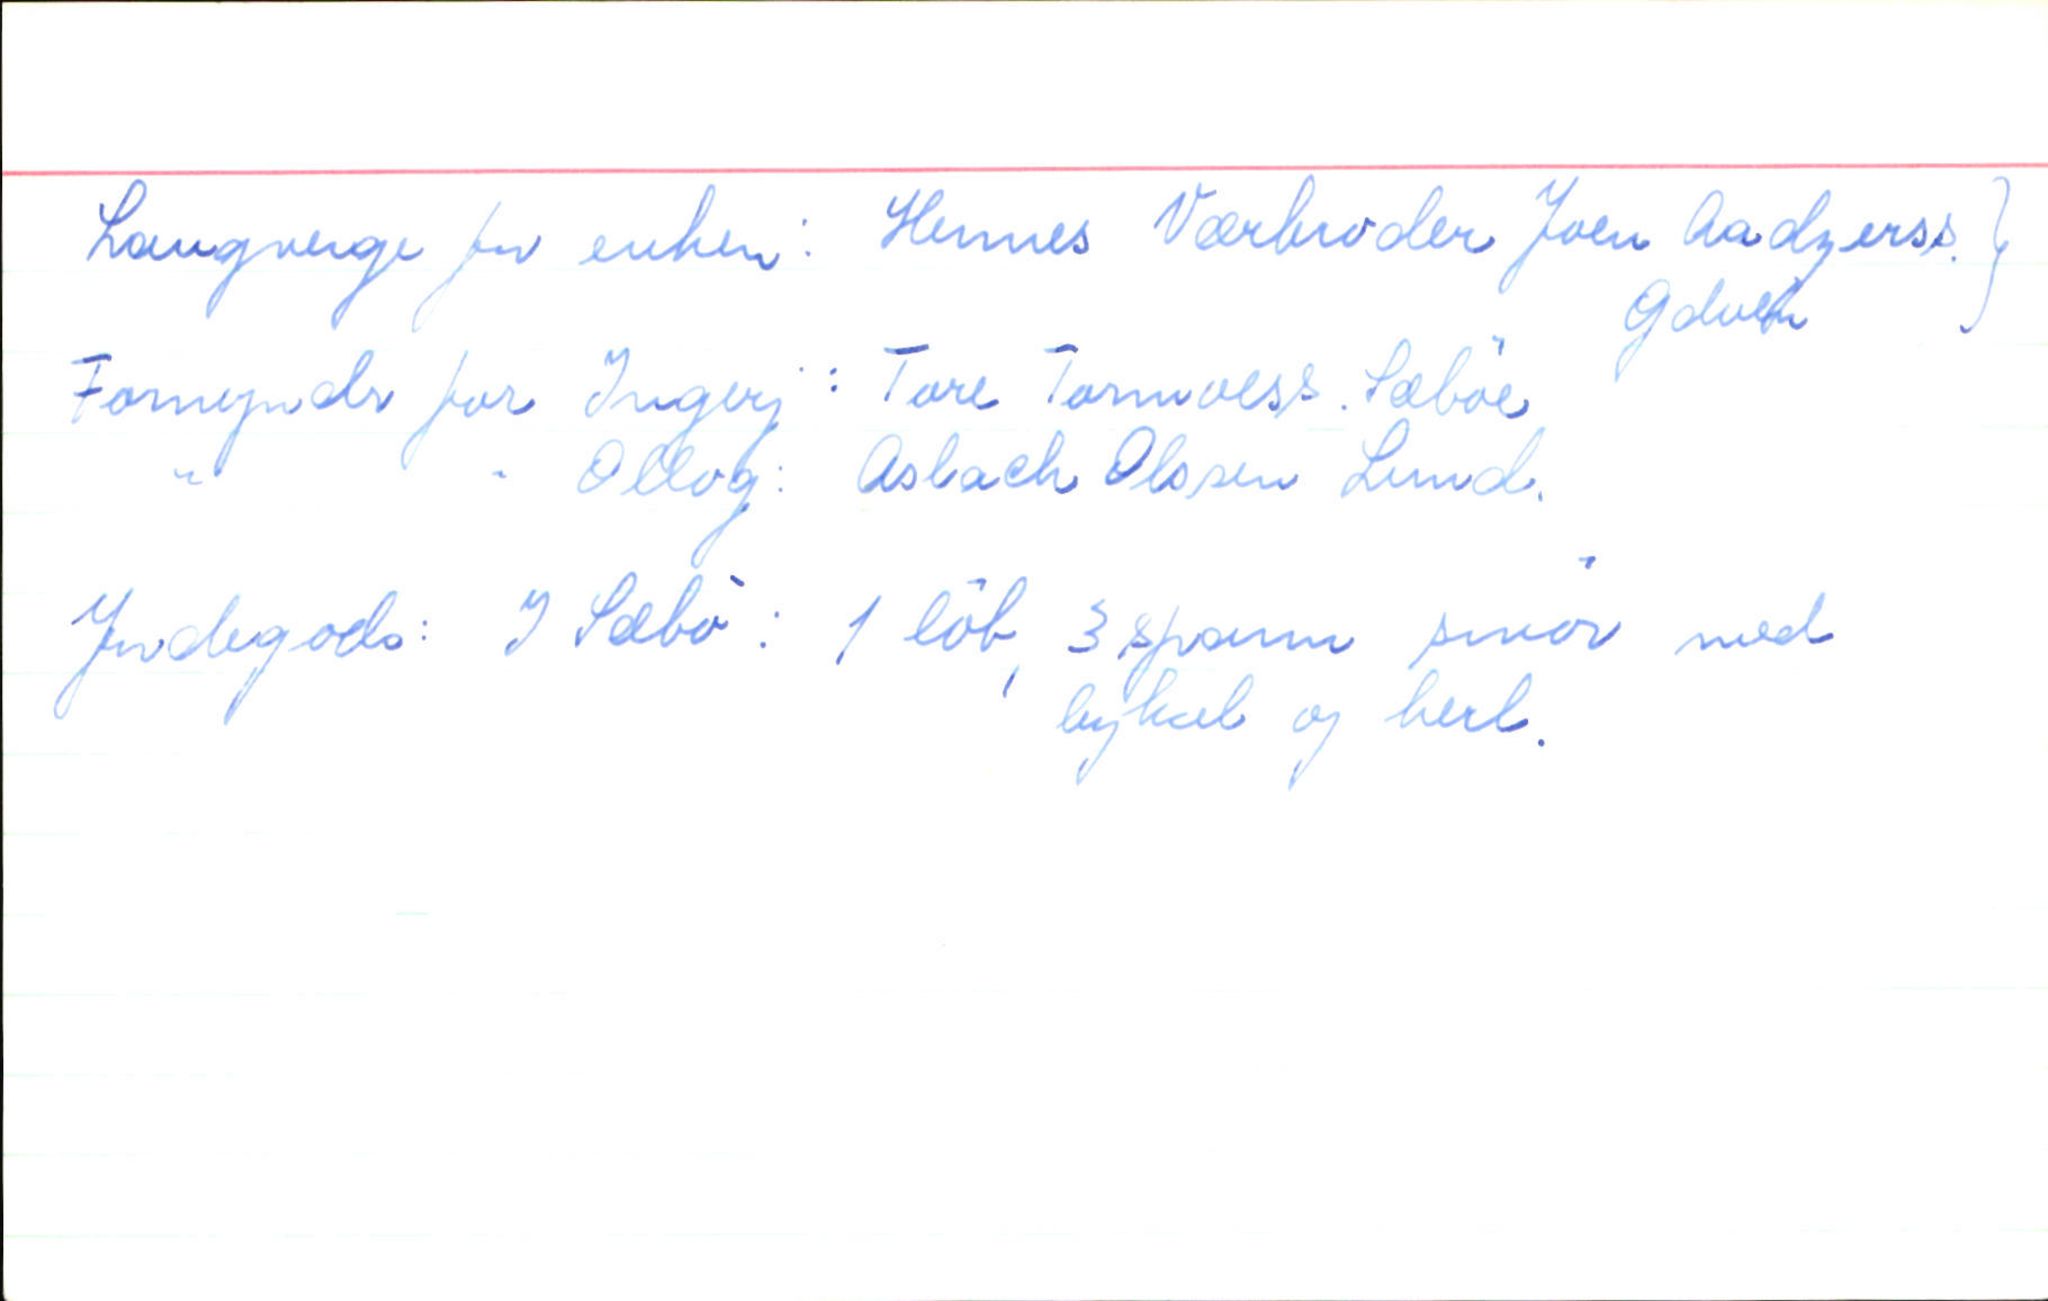 Laugverge for enken: Hennes Værbroder Joen Aadzerss. }
Gduen
Formyndr for Ingerj: Tore Tormoess. Sæböe
" " Ollog: Aslach Olssen Lund.
Jordegods: I Sæbö: 1 löb, 3 spann smör med
byksel og herl.